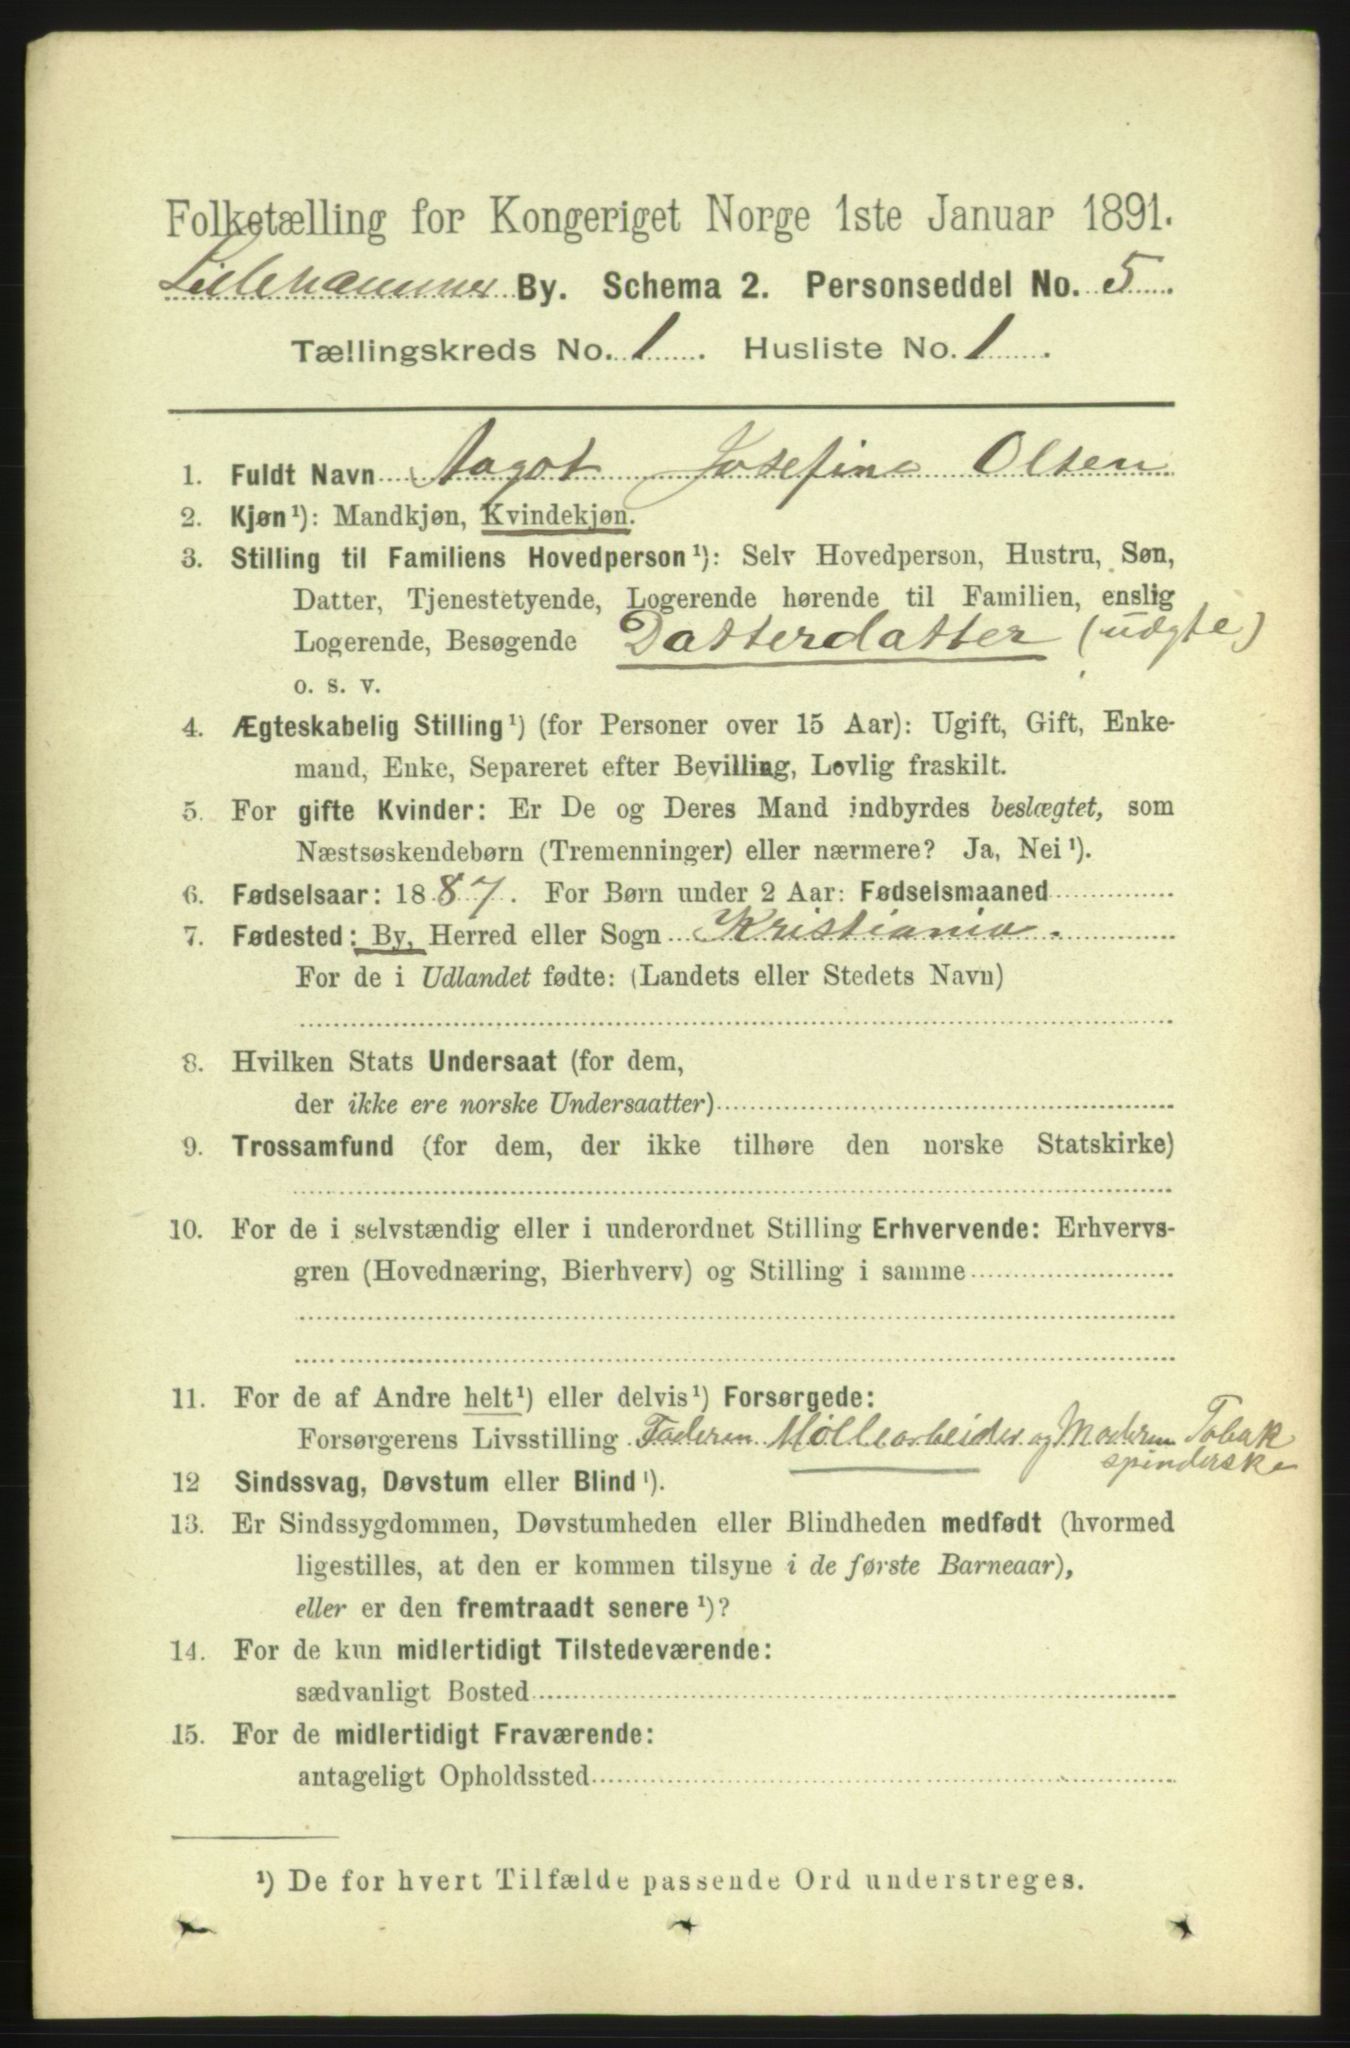 Folketælling for Kongeriget Norge 1ste Januar 1891.
Lillehammer By. Schema 2. Personseddel No. 5
Tællingskreds No. 1. Husliste No. 1.
1. Fuldt Navn Aagot Josefine Olsen
2. Kjøn¹): Mandkjøn, Kvindekjøn.
3. Stilling til Familiens Hovedperson¹): Selv Hovedperson, Hustru, Søn,
Datter, Tjenestetyende, Logerende hørende til Familien, enslig
Logerende, Besøgende Datterdatter (uægte)
o. s. v.
4. Ægteskabelig Stilling¹) (for Personer over 15 Aar): Ugift, Gift, Enke-
mand, Enke, Separeret efter Bevilling, Lovlig fraskilt.
5. For gifte Kvinder: Er De og Deres Mand indbyrdes beslægtet, som
Næstsøskendebørn (Tremenninger) eller nærmere? Ja, Nei¹).
6. Fødselsaar: 1887. For Børn under 2 Aar: Fødselsmaaned
7. Fødested: By, Herred eller Sogn Kristiania.
For de i Udlandet fødte: (Landets eller Stedets Navn)
8. Hvilken Stats Undersaat (for dem,
der ikke ere norske Undersaatter)
9. Trossamfund (for dem, der ikke tilhøre den norske Statskirke)
10. For de i selvstændig eller i underordnet Stilling Erhvervende: Erhvervs-
gren (Hovednæring, Bierhverv) og Stilling i samme
11. For de af Andre helt¹) eller delvis¹) Forsørgede:
Forsørgerens Livsstilling Faderen Møllearbeider og Moderen Tobak
spinderske
12 Sindssvag, Døvstum eller Blind¹).
13. Er Sindssygdommen, Døvstumheden eller Blindheden medfødt (hvormed
ligestilles, at den er kommen tilsyne i de første Barneaar),
eller er den fremtraadt senere¹)?
14. For de kun midlertidigt Tilstedeværende:
sædvanligt Bosted
15. For de midlertidigt Fraværende:
antageligt Opholdssted
¹) De for hvert Tilfælde passende Ord understreges.